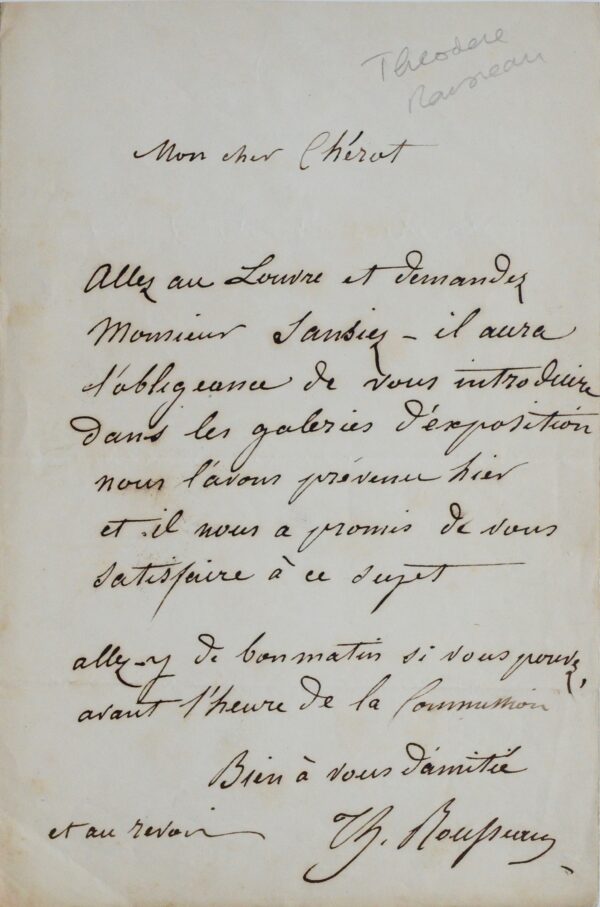 Theodore
Rousseau
Mon cher Chérot
Allez au Louvre et demandez
Monsieur Sansier – il aura
l'obligeance de vous introduire
dans les galeries d'exposition
nous l'avons prévenu hier
et il nous a promis de vous
satisfaire à ce sujet
allez-y de bon matin si vous pouvez,
avant l'heure de la Commission
Bien à vous d'amitié
et au revoir Th. Rousseau